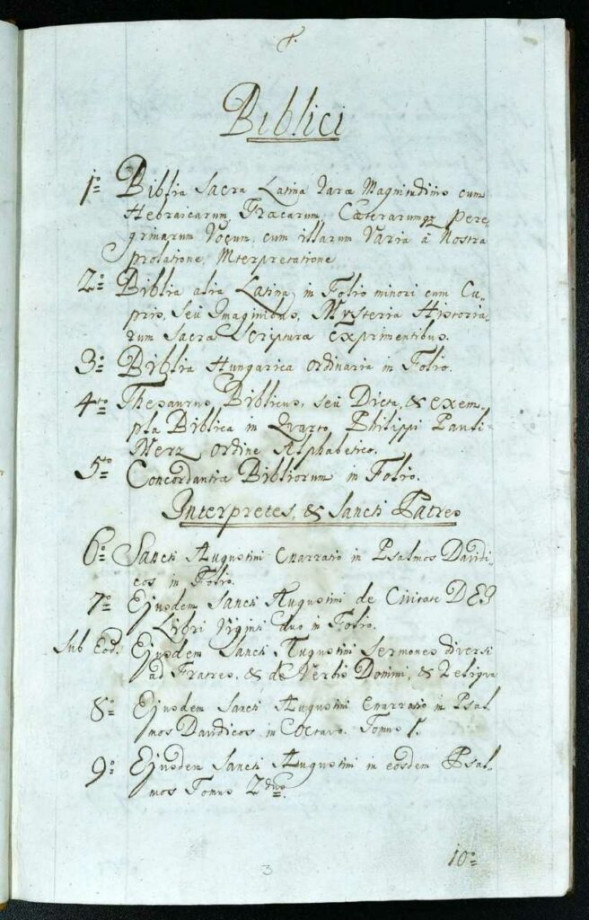 1.
Biblici
1º Biblia Sacra Latina Raræ Magnitudinis cum
Hebraicarum, Græcarum, Cæterarumq3 Pere„
grinarum Vocum, cum illarum Varia à Nostra
prolatione, Interpretatione
2º Biblia alia Latina, in Folio minori cum Cu„
pris, seu Imaginibus, Mysteria Historia„
rum Sacra Scriptura exprimentibus.
3º Biblia Hungarica ordinaria in Folio.
4to Thesaurus Biblicus, seu Dicta, & exem„
pla Biblica in Quarto Philippi Pauli
Merz ordine Alphabetico.
5º Concordantiæ Bibliorum in Folio.
Interpretes, & Sancti Patres
6º Sancti Augustini Enarratio in Psalmos Davidi„
cos in Folio.
7º Ejusdem Sancti Augustini de Civitate DEI
Libri Viginti duo in Folio.
Sub Eod. Ejusdem Sancti Augustini Sermones diversi
ad Fratres, & de Verbis Domini, & Reliqua
8º Ejusdem Sancti Augustini Enarratio in Psal„
mos Davidicos in Octavo. Tomus 1.
9º Ejusdem Sancti Augustini in eosdem Psal„
mos Tomus 2dus.
10º
3